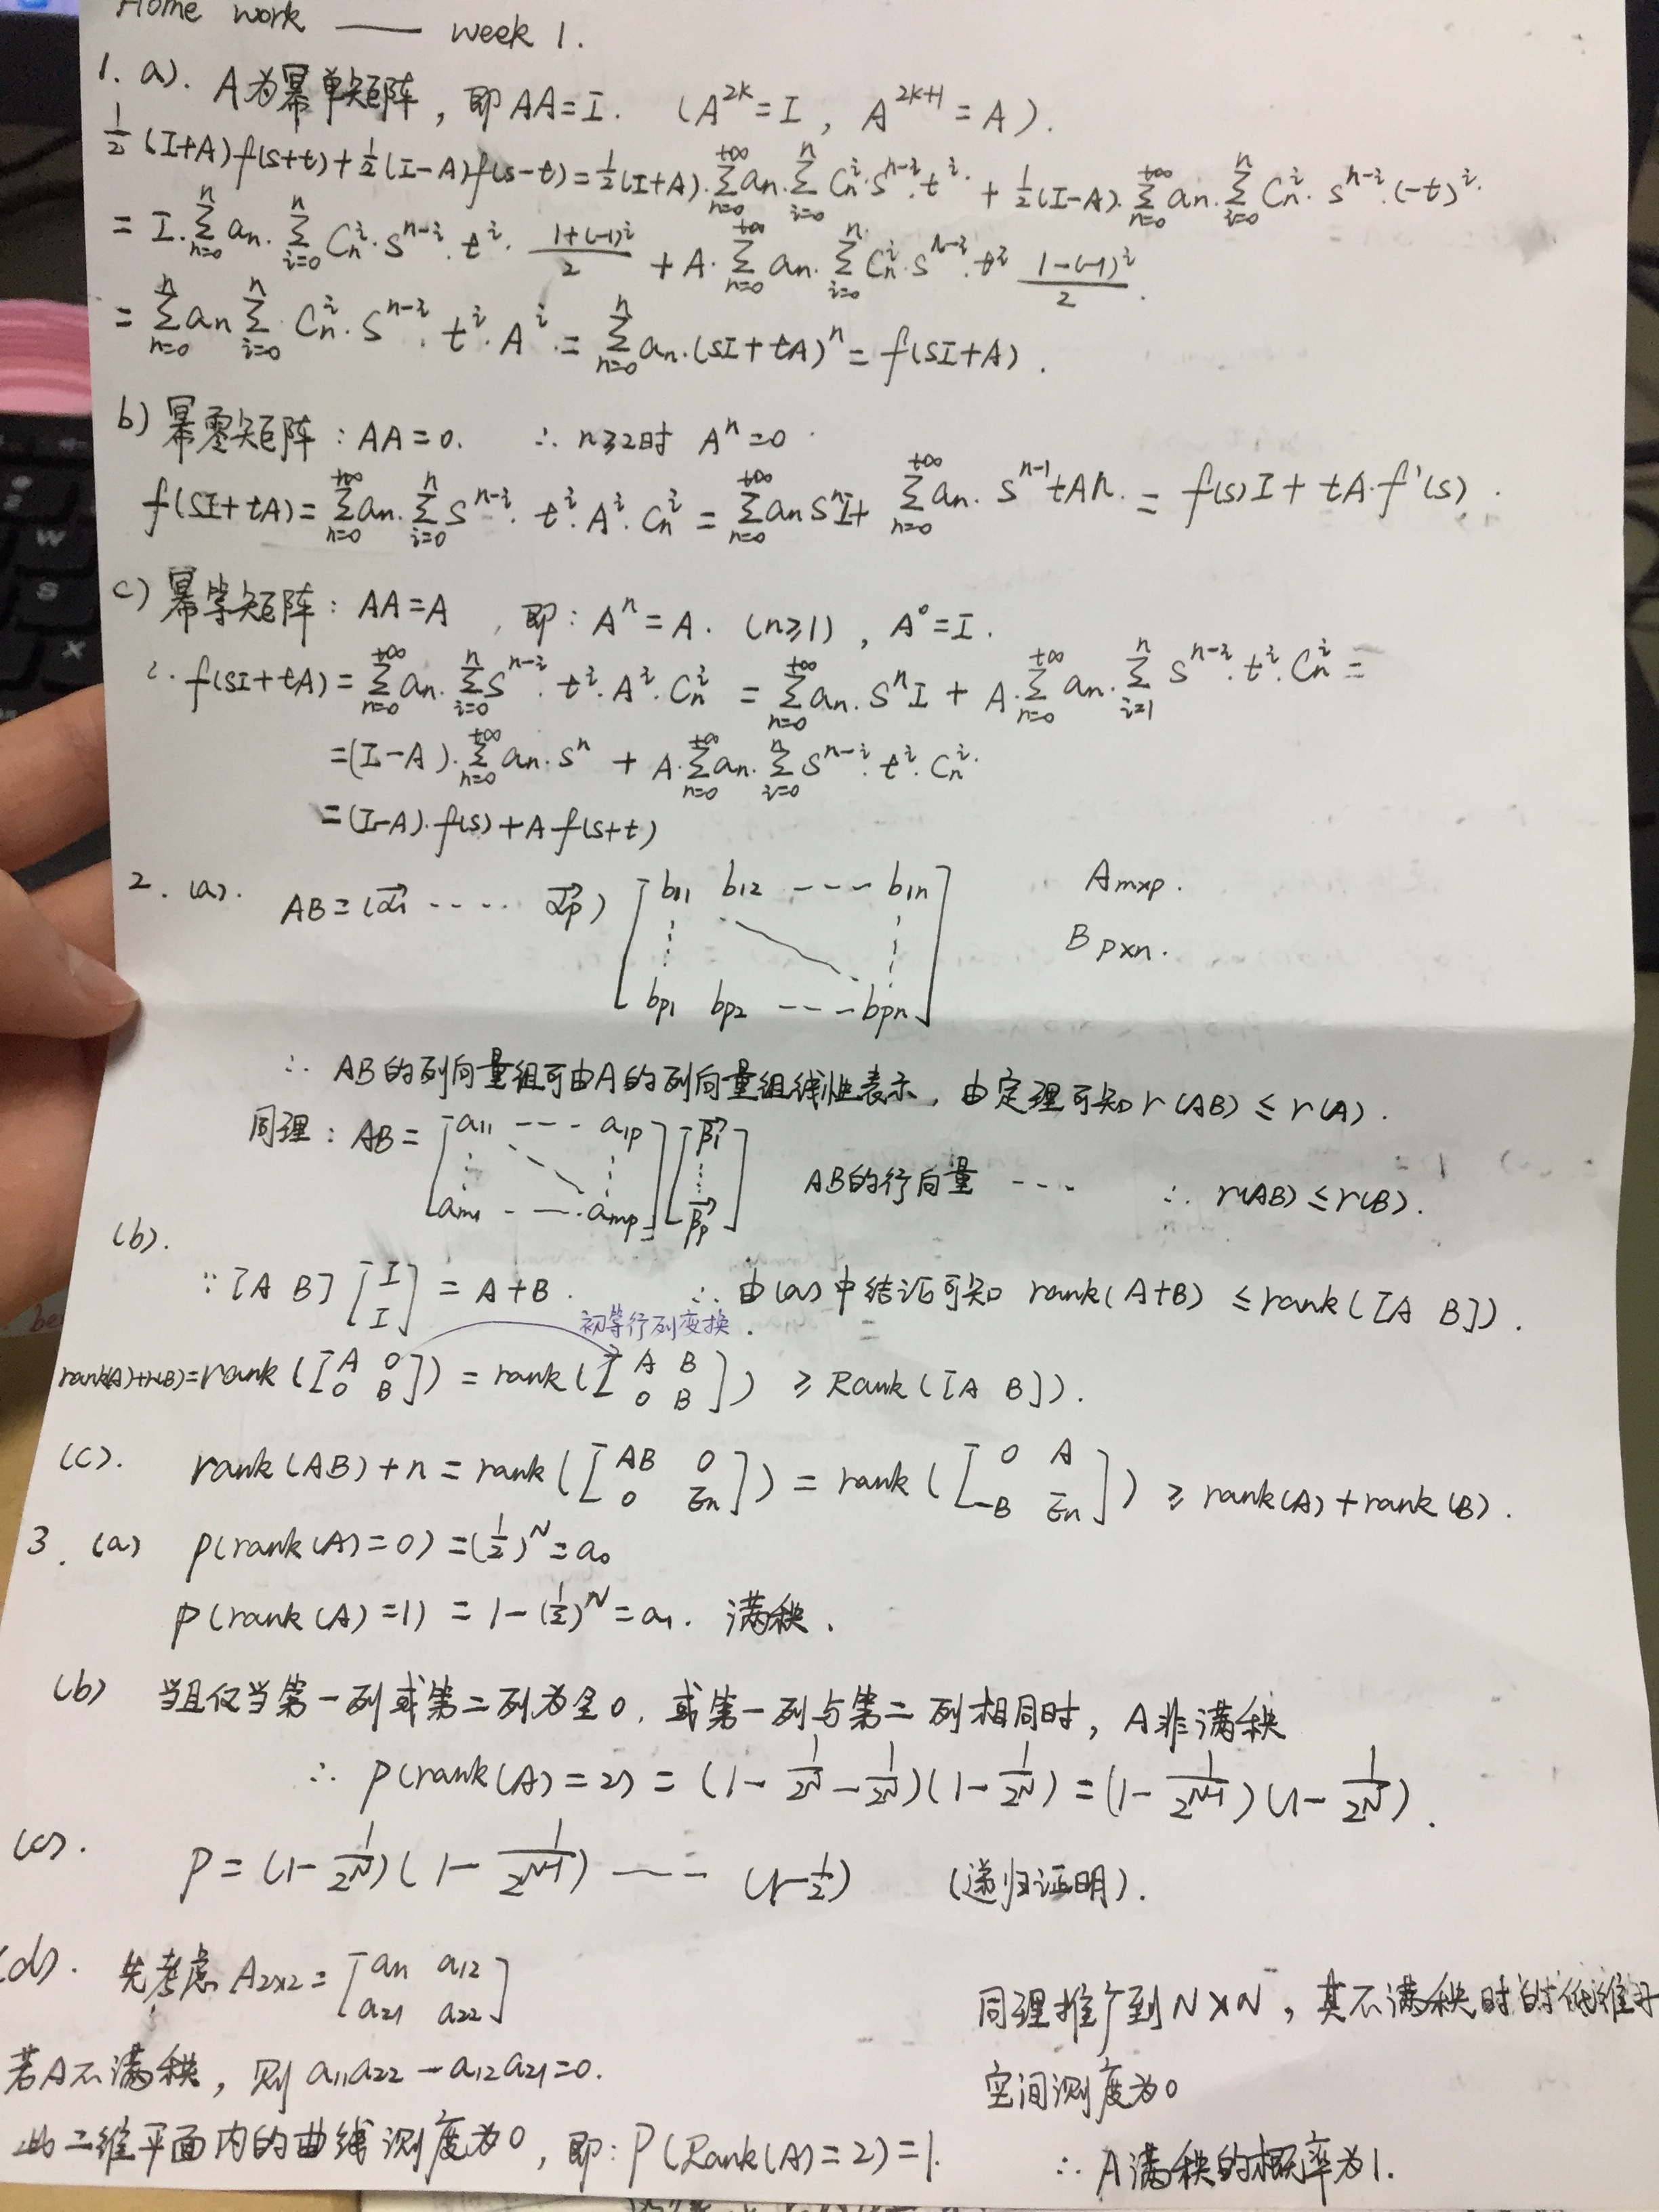 Home work —— week 1.
1. a). A为幂单矩阵，即 AA=I. (A^{2k}=I, A^{2k+1}=A).
\frac{1}{2}(I+A)f(s+t)+\frac{1}{2}(I-A)f(s-t)=\frac{1}{2}(I+A)·\sum_{n=0}^{+∞}a_n·\sum_{i=0}^{n}C_n^i·s^{n-i}·t^i + \frac{1}{2}(I-A)·\sum_{n=0}^{+∞}a_n·\sum_{i=0}^{n}C_n^i·s^{n-i}·(-t)^i
= I·\sum_{n=0}^{n}a_n·\sum_{i=0}^{n}C_n^i·s^{n-i}·t^i·\frac{1+(-1)^i}{2} + A·\sum_{n=0}^{+∞}a_n·\sum_{i=0}^{n}C_n^i·s^{n-i}·t^i \frac{1-(-1)^i}{2}.
= \sum_{n=0}^{n}a_n\sum_{i=0}^{n}·C_n^i·s^{n-i}·t^i·A^i = \sum_{n=0}^{n}a_n·(sI+tA)^n = f(sI+A).
b) 幂零矩阵：AA=0. ∴ n≥2时 A^n=0
f(sI+tA)=\sum_{n=0}^{+∞}a_n·\sum_{i=0}^{n}s^{n-i}·t^i·A^i·C_n^i = \sum_{n=0}^{+∞}a_n s^n I+ \sum_{n=0}^{+∞}a_n·s^{n-1}tAn. = f(s)I+tA·f'(s).
c) 幂等矩阵：AA=A，即：A^n=A. (n≥1), A^0=I.
∴ f(sI+tA)=\sum_{n=0}^{+∞}a_n·\sum_{i=0}^{n}s^{n-i}·t^i·A^i·C_n^i = \sum_{n=0}^{+∞}a_n·s^n I + A·\sum_{n=0}^{+∞}a_n·\sum_{i=1}^{n}s^{n-i}·t^i·C_n^i =
=(I-A)·\sum_{n=0}^{+∞}a_n·s^n + A·\sum_{n=0}^{+∞}a_n·\sum_{i=0}^{n}s^{n-i}·t^i·C_n^i
=(I-A)·f(s)+A f(s+t)
2. (a). AB=(\vec{α_1} ····· \vec{α_p}) [b_{11} b_{12} ---- b_{1n} A_{m×p}.
B_{p×n}.
b_{p1} b_{p2} ---- b_{pn}]
∴ AB的列向量组可由A的列向量组线性表示，由定理可知 r(AB)≤r(A).
同理：AB=[a_{11} ---- a_{1p}; a_{m1} ---- a_{mp}][\vec{β_1}; \vec{β_p}] AB的行向量 ---- ∴ r(AB)≤r(B).
(b).
∵ [A B][I; I] = A+B. ∴ 由(a)中结论可知 rank(A+B) ≤rank([A B]).
初等行列变换.
rank(A)+r(B)=rank([A 0; 0 B]) = rank([A B; 0 B]) ≥ Rank([A B]).
(c). rank(AB)+n=rank([AB 0; 0 E_n]) = rank([0 A; -B E_n]) ≥ rank(A)+rank(B).
3. (a) P(rank(A)=0)=(\frac{1}{2})^N=a_0
P(rank(A)=1) = 1-(\frac{1}{2})^N=a_1. 满秩.
(b) 当且仅当第一列或第二列为全0，或第一列与第二列相同时，A非满秩
∴ P(rank(A)=2) = (1-\frac{1}{2^N}-\frac{1}{2^N})(1-\frac{1}{2^N}) =(1-\frac{1}{2^{N-1}})(1-\frac{1}{2^N}).
(c). P=(1-\frac{1}{2^N})(1-\frac{1}{2^{N-1}}) ---- (1-\frac{1}{2}) (递归证明).
(d). 先考虑 A_{2×2}=[a_{11} a_{12}; a_{21} a_{22}]
若A不满秩，则 a_{11}a_{22}-a_{12}a_{21}=0.
此二维平面内的曲线测度为0，即：P(Rank(A)=2)=1.
同理推广到N×N，其不满秩时的低维子
空间测度为0
∴ A满秩的概率为1.